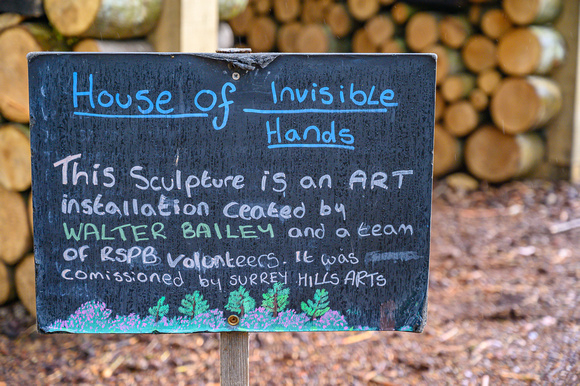 House of Invisible
Hands
This Sculpture is an ART
installation ceated by
WALTER BAILEY and a team
of RSPB volunteers. It was
comissioned by SURREY HILLS ARTS